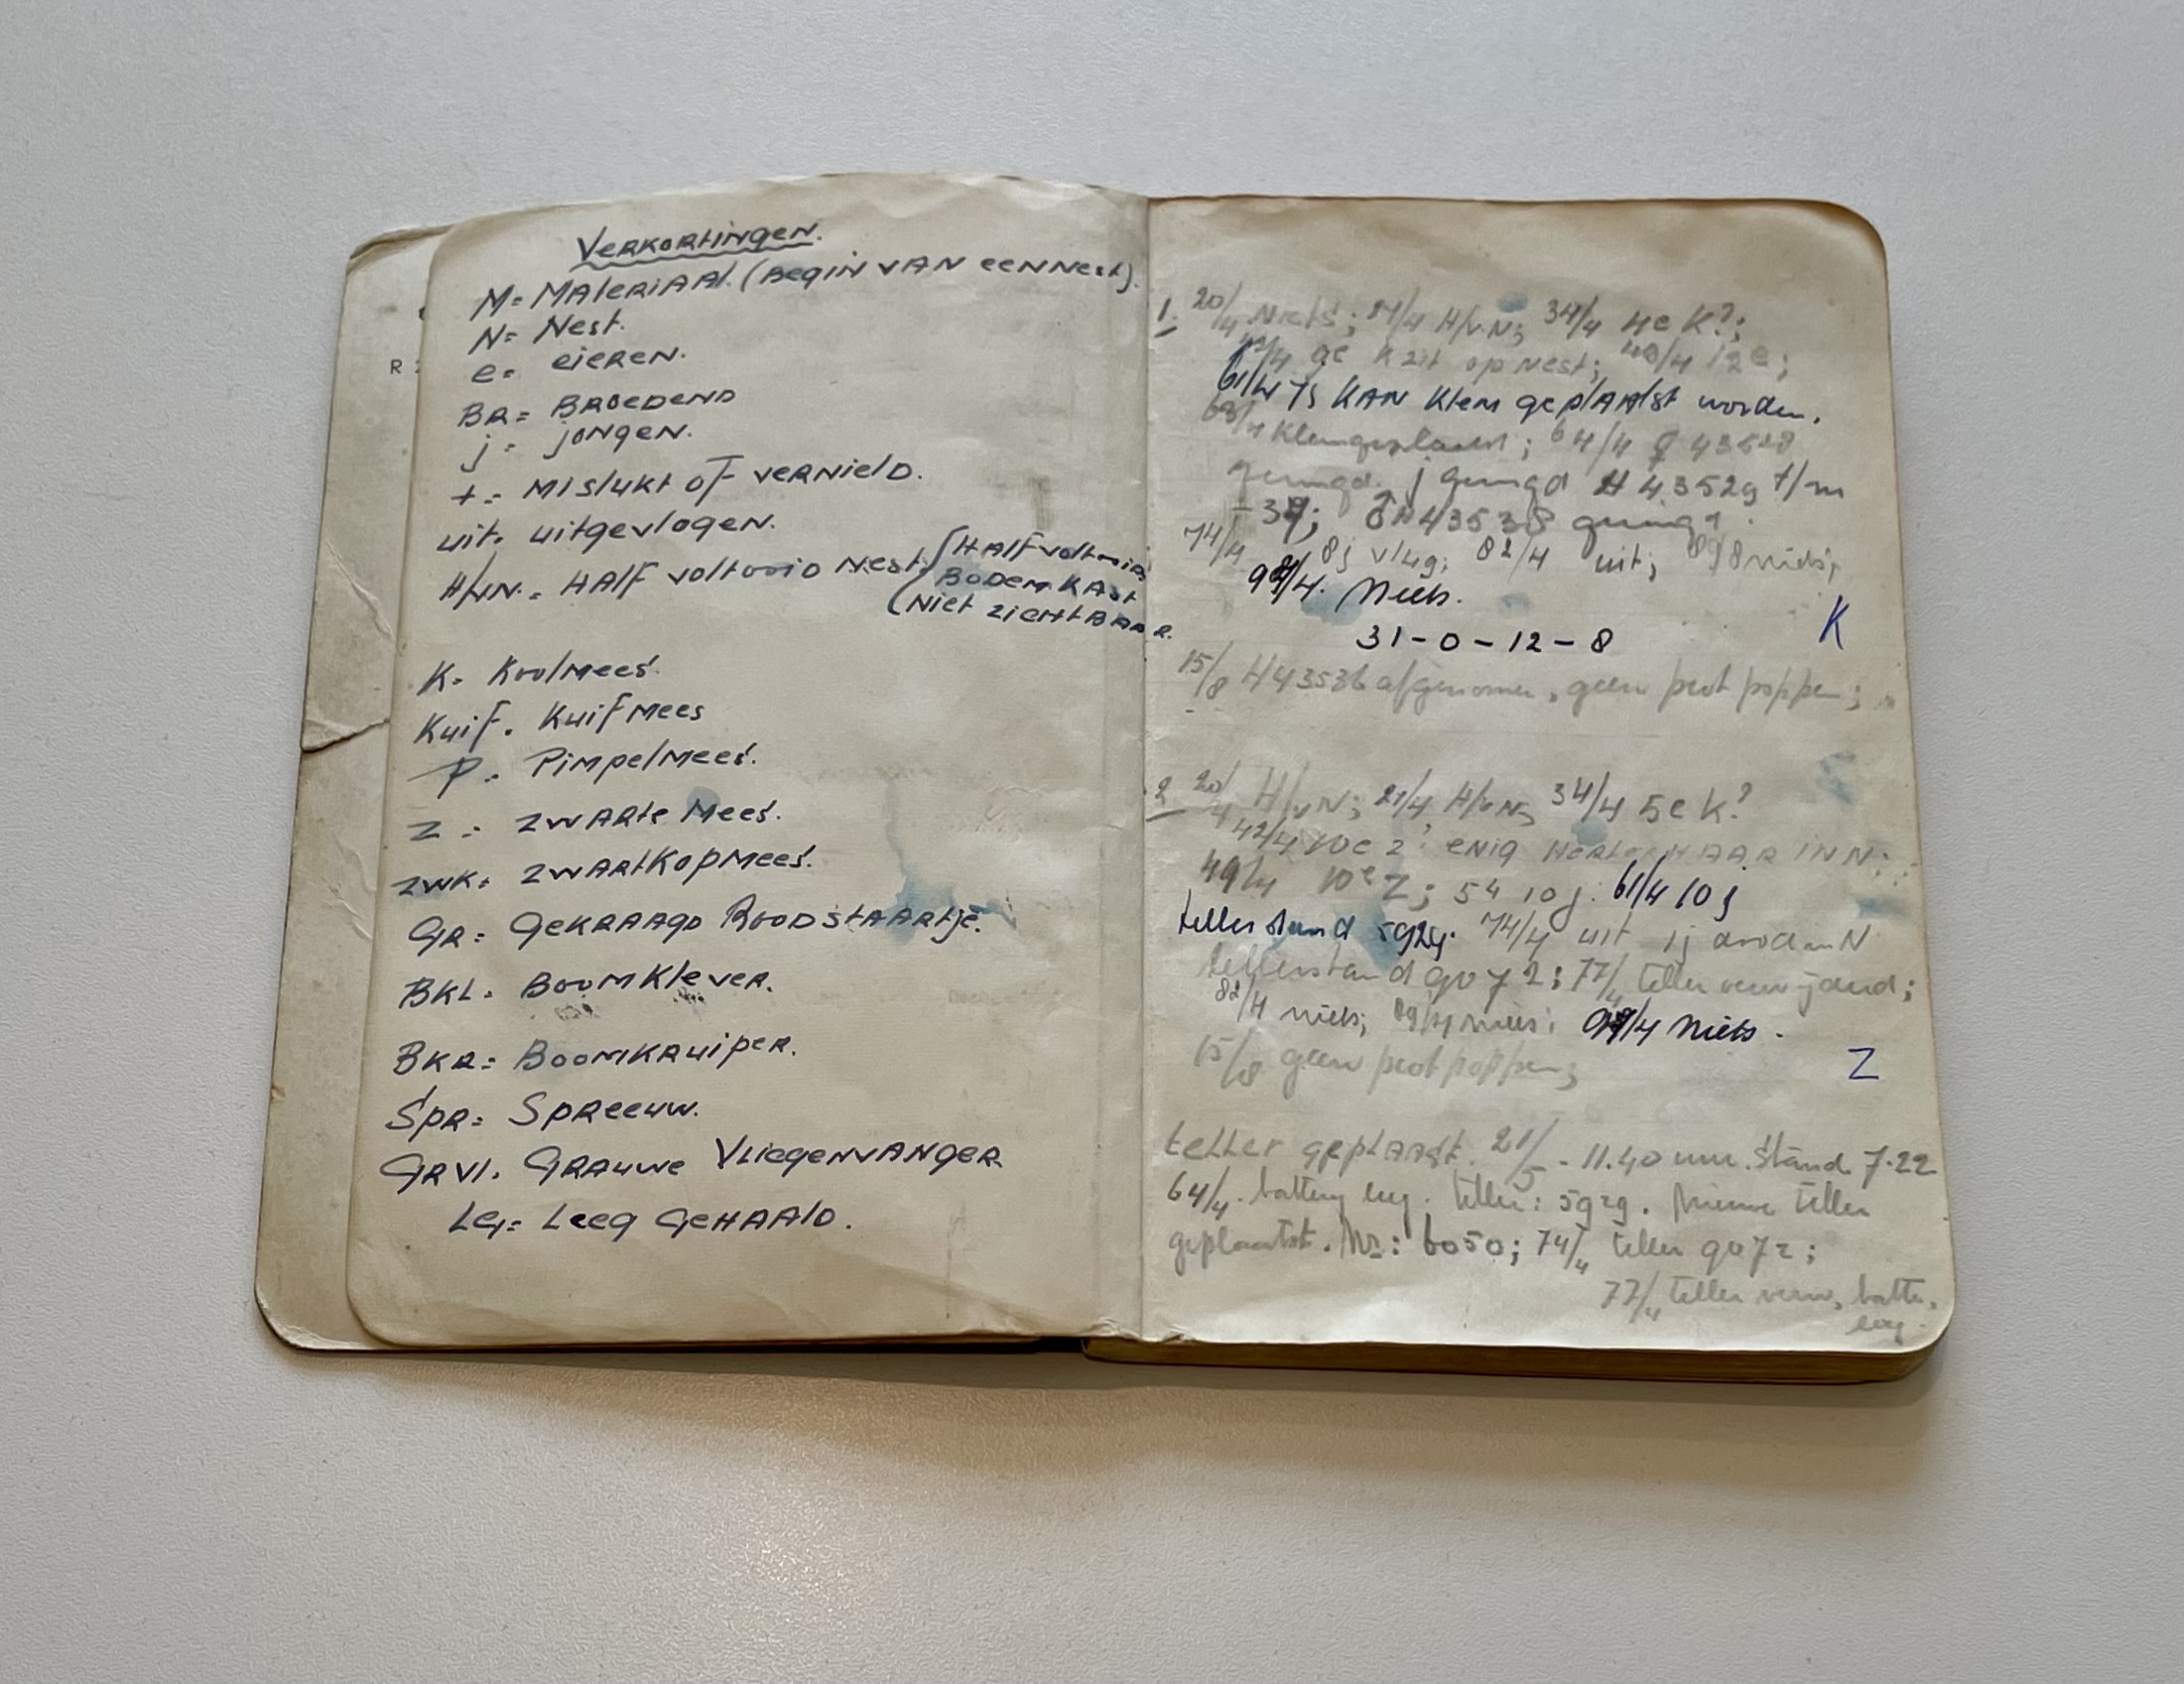 Verkortingen.
M= Materiaal. (Begin van een Nest).
N= Nest.
e= eieren.
BR= Broedend
j= jongen.
+= Mislukt of vernield.
uit= uitgevlogen.
H/vN.= Half voltooid Nest. (Half voltooid
Bodem Kast
(Niet zichtbaar.
K= Koolmees.
Kuif. Kuifmees
P.= Pimpelmees.
Z= Zwarte Mees.
ZWK= Zwartkopmees.
GR= Gekraagd Roodstaartje.
BKL= Boomklever.
BKR= Boomkruiper.
Spr= Spreeuw.
GRVl. Grauwe Vliegenvanger
Lg= Leeg Gehaald.
R
1. 20/4 Niets; 21/4 H/v.N; 34/4 4e K?;
42/4 9e K zit op Nest; 12e;
61/4 75 KAN Klem geplaatst worden.
Klem geplaatst; 64/4 ♀ 43528
geringd. j geringd H 43529 t/m
-37; ♂ H 43538 geringd.
74/4 8j vlug; 82/4 uit; niets;
Niets.
31-0-12-8
K
15/8 H43536 afgenomen, geen peot poppen;
2 20/4 H/vN; 21/4 H/vN; 34/4 5e K?
42/4 10e Z; enig HAAR IN N;
49/4 10e Z; 54 10j. 61/4 10j
tellerstand 5929. 74/4 uit 1j dood in N
tellerstand 9072; 77/4 teller verwijderd;
82/4 niets; 89/4 niets; Niets.
15/8 geen peot poppen;
Z
teller geplaatst. 21/5 - 11.40 uur. Stand 7.22
64/4. battery leeg. teller: 5929. Nieuwe teller
geplaatst. Nr: 6050; 74/4 teller 9072;
77/4 teller verw, batt.
leeg.